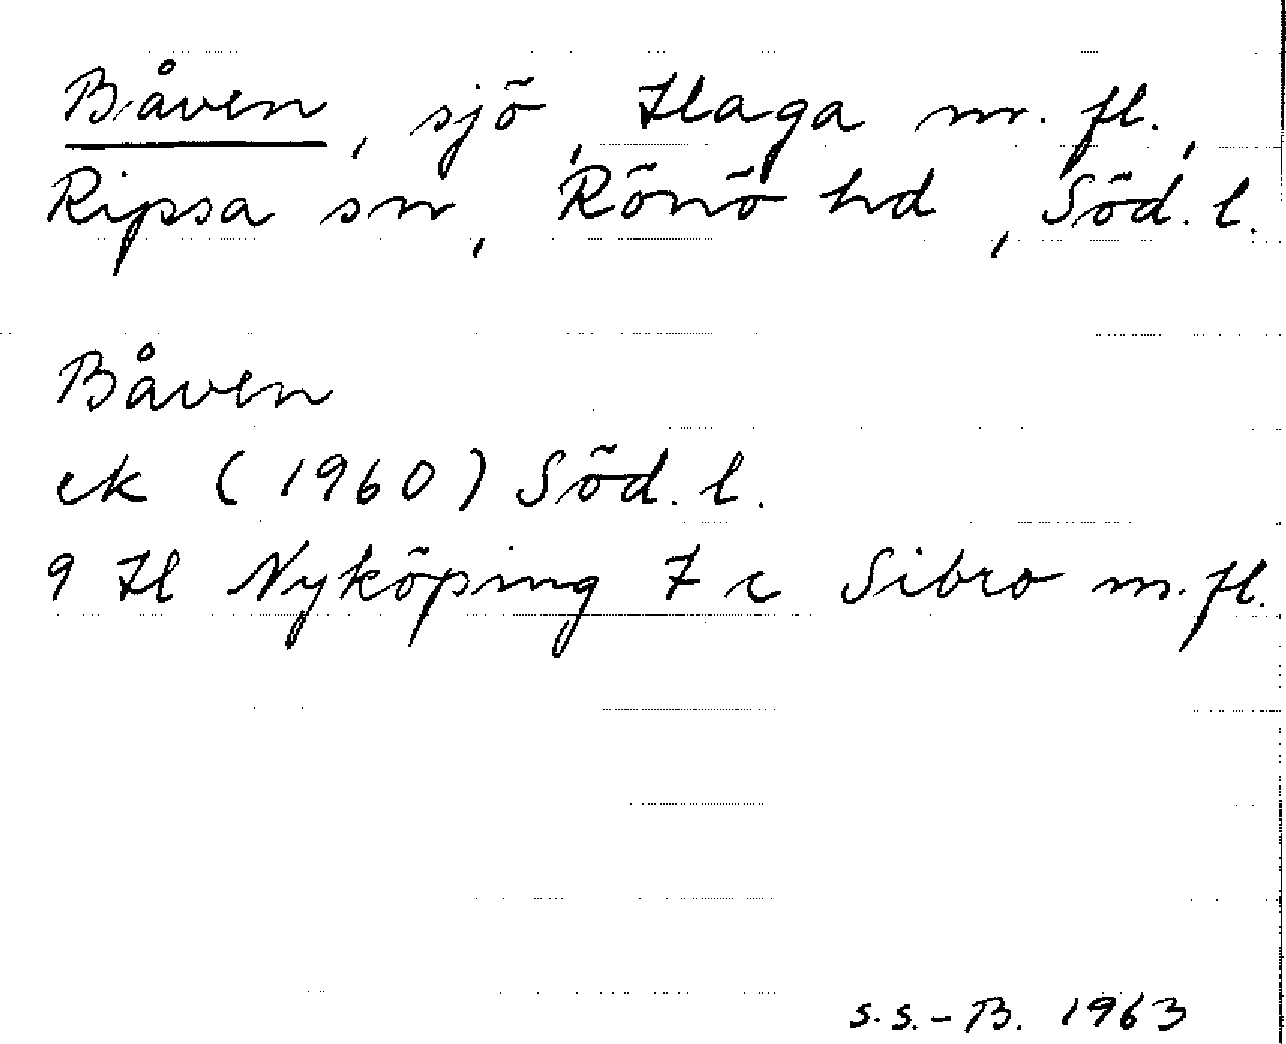 Båven, sjö, Ilaga m. fl.,
Ripsa sn, Rönö hd, Söd. l.
Båven
ek (1960) Söd. l.
9 Il Nyköping 7 c Sibro m. fl.
s.s.-B. 1963